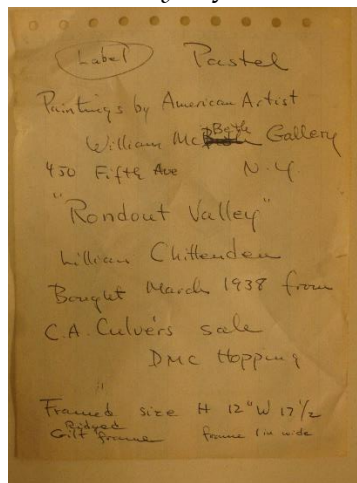 Label Pastel
Paintings by American Artist
Beth
William McBeth Gallery
450 Fifth Ave N.Y.
"Rondout Valley"
Lillian Chittenden
Bought March 1938 from
C.A. Culvers sale
DMC Hopping
Framed size H 12" W 17 1/2
Ridged
Gilt frame frame 1 in wide